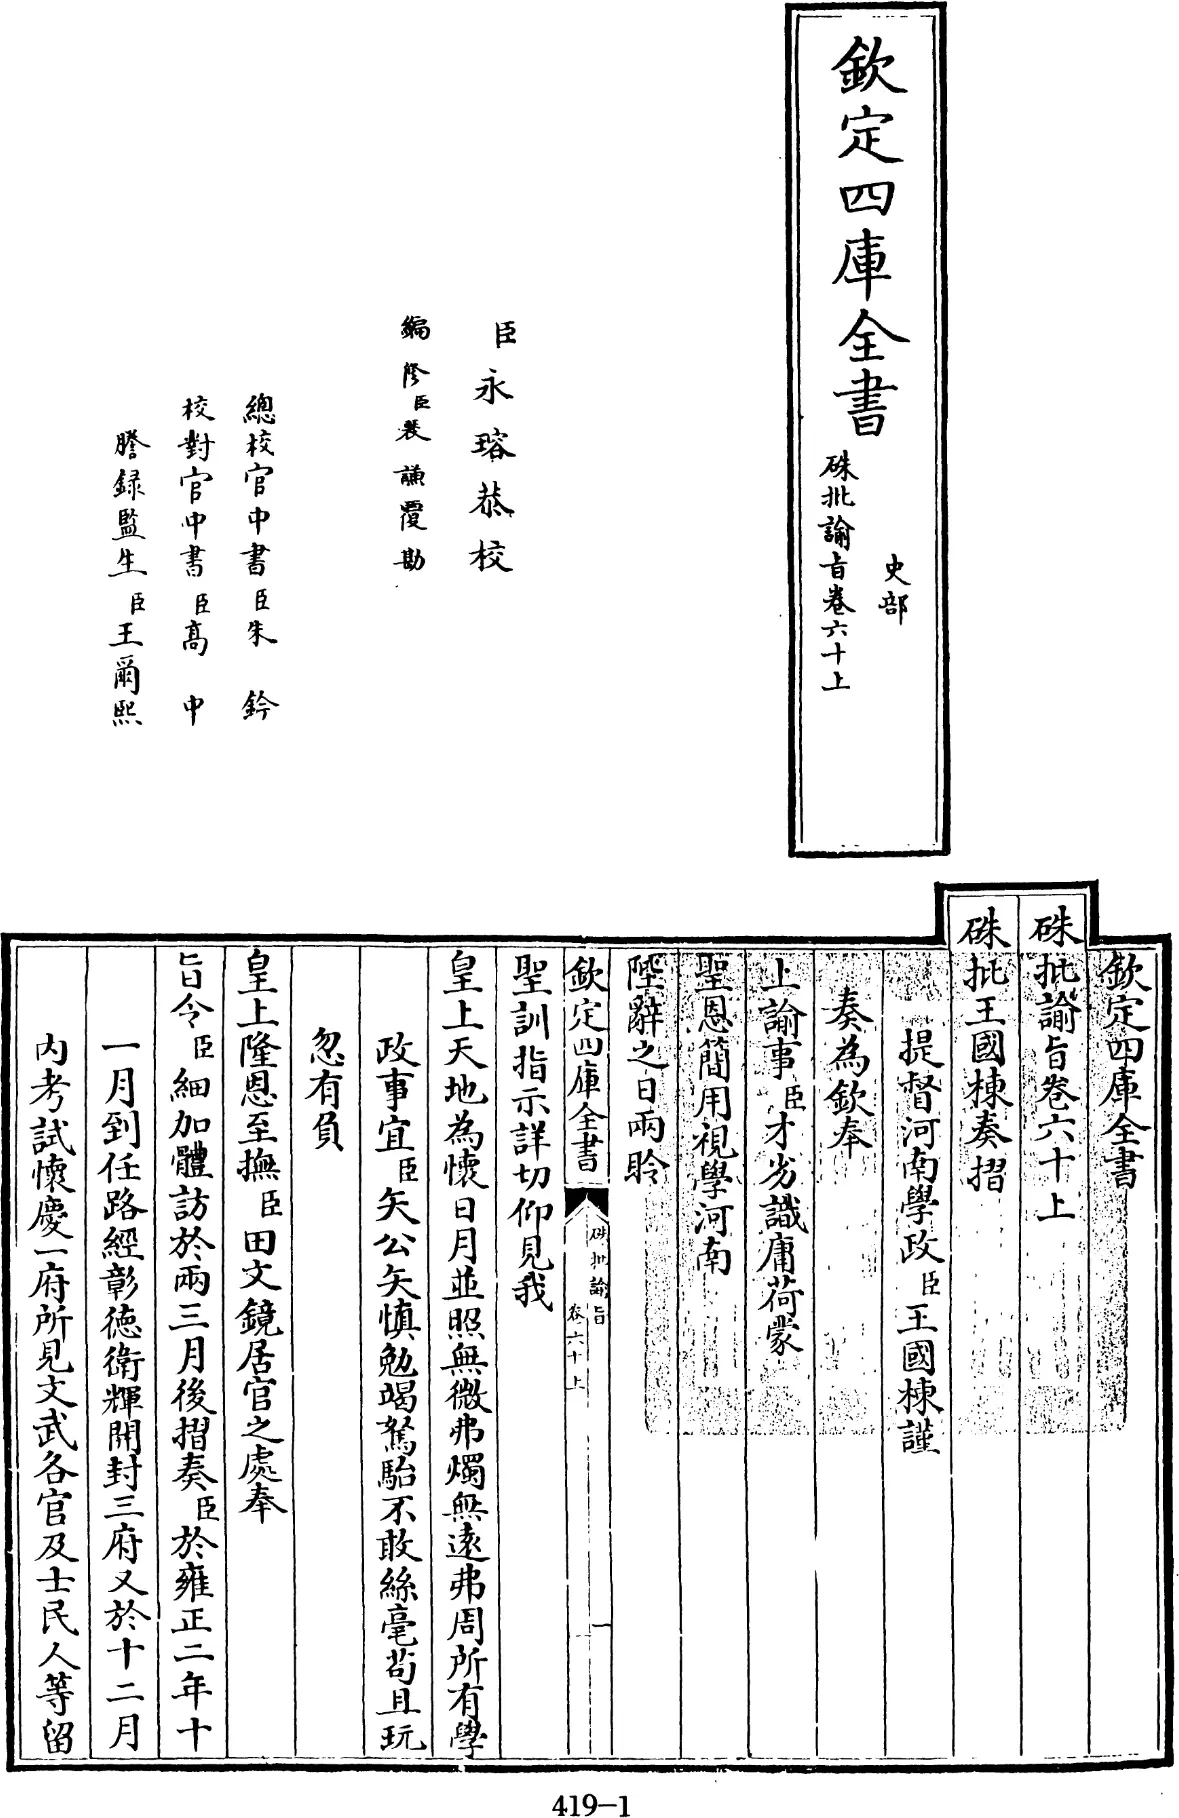 欽定四庫全書
史部
硃批諭旨卷六十上
臣永瑢恭校
編修臣裴謙覆勘
總校官中書臣朱鈐
校對官中書臣高中
謄録監生臣王爾熙
欽定四庫全書
硃批諭旨卷六十上
硃批王國棟奏摺
提督河南學政臣王國棟謹
奏為欽奉
上諭事臣才劣識庸荷蒙
聖恩簡用視學河南
陛辭之日兩聆
欽定四庫全書
硃批諭旨
卷六十上
一
聖訓指示詳切仰見我
皇上天地為懷日月並照無微弗燭無遠弗周所有學
政事宜臣矢公矢慎勉竭駑駘不敢絲毫茍且玩
忽有負
皇上隆恩至撫臣田文鏡居官之處奉
旨令臣細加體訪於兩三月後摺奏臣於雍正二年十
一月到任路經彰徳衛輝開封三府又於十二月
内考試懷慶一府所見文武各官及士民人等留
419-1